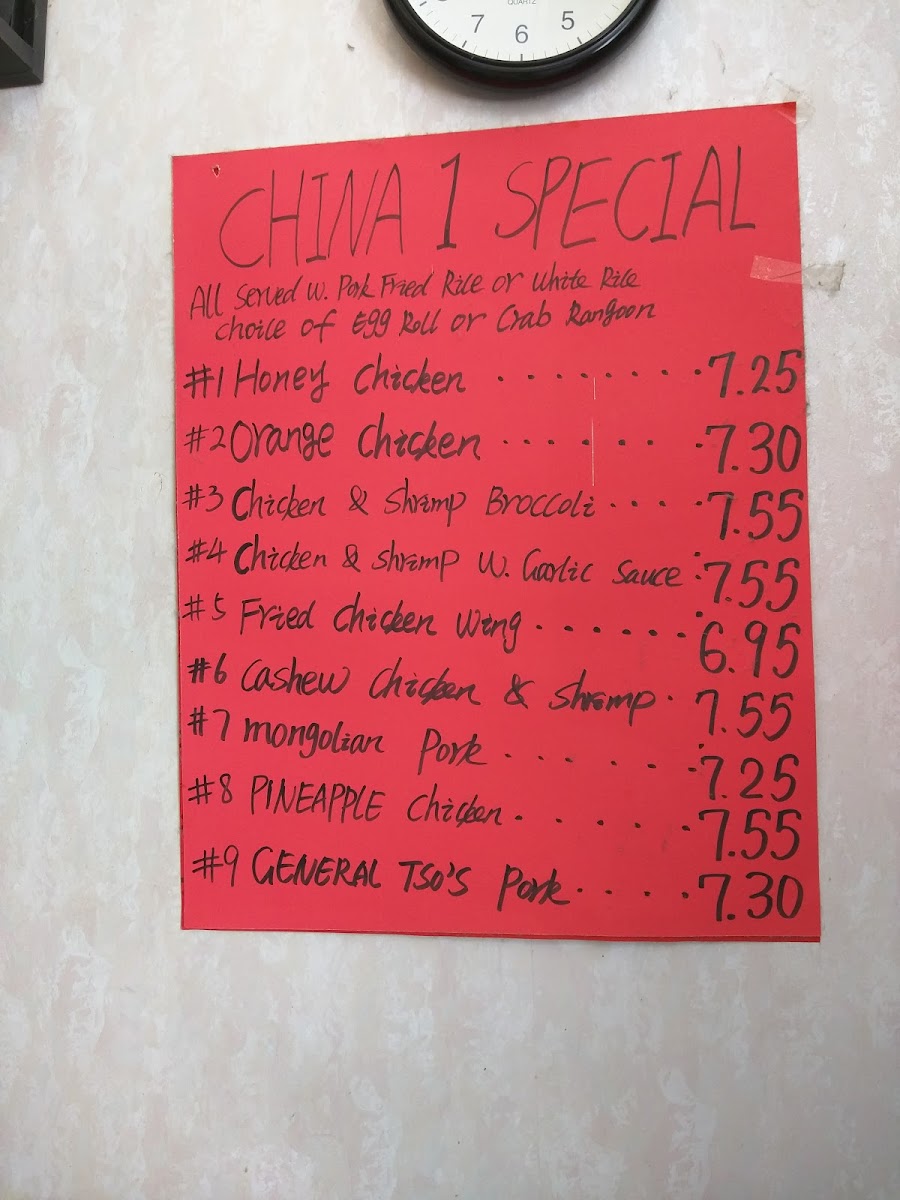 7 6 5
QUARTZ
CHINA 1 SPECIAL
All Served w. Pork Fried Rice or White Rice
choice of Egg Roll or Crab Rangoon
#1 Honey Chicken ........ 7.25
#2 Orange Chicken ....... 7.30
#3 Chicken & Shrimp Broccoli .... 7.55
#4 Chicken & Shrimp W. Garlic Sauce : 7.55
#5 Fried Chicken Wing ....... 6.95
#6 Cashew Chicken & Shrimp . 7.55
#7 mongolian Pork ...... 7.25
#8 PINEAPPLE Chicken ..... 7.55
#9 GENERAL TSO'S Pork ..... 7.30